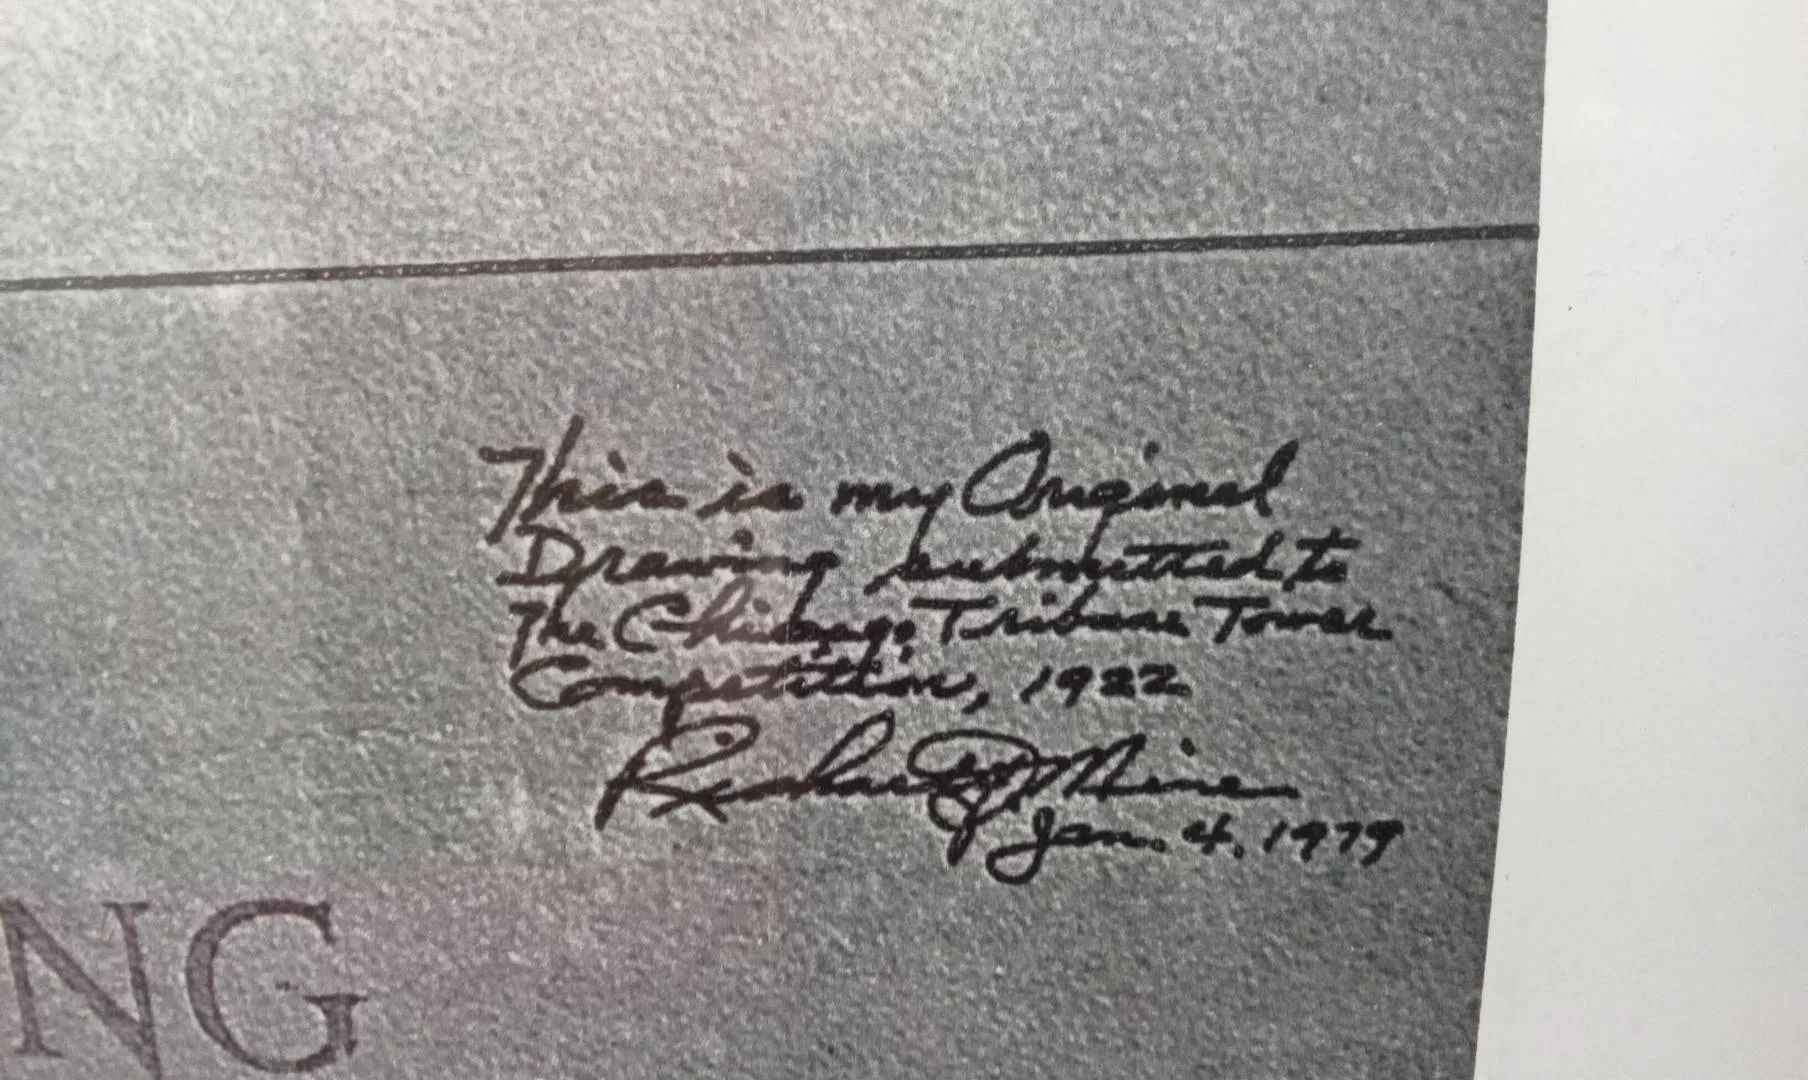 This is my Original
Drawing submitted to
The Chicago Tribune Tower
Competition, 1922
Richard Y. Mine
Jan. 4, 1979
NG